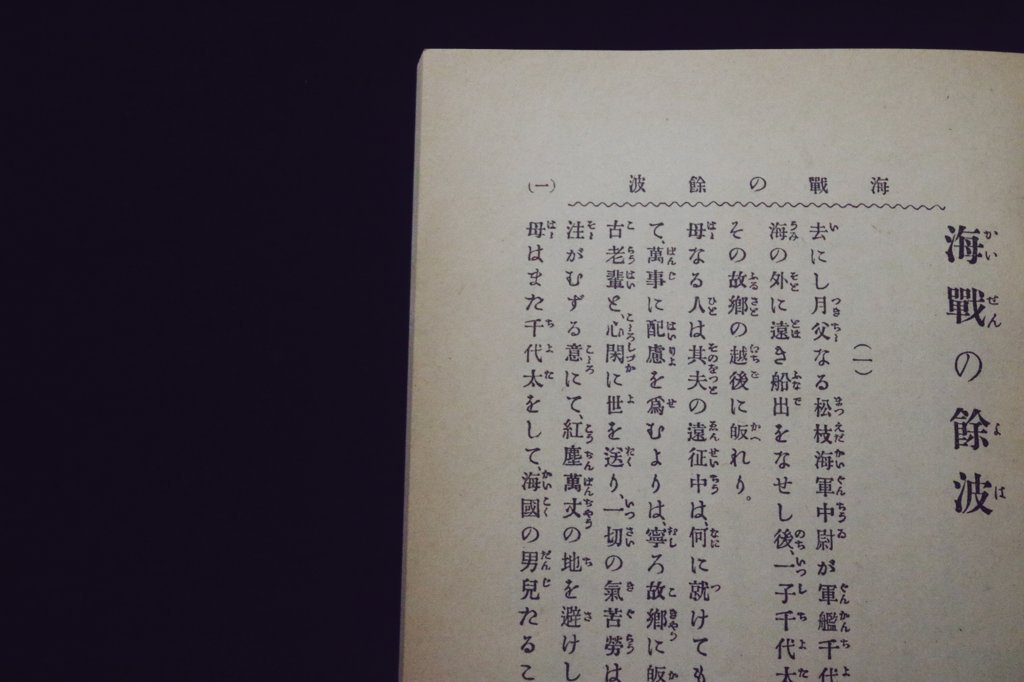 海戰の餘波
(一)
海戰の餘波
(一)
去にし月父なる松枝海軍中尉が軍艦千代
海の外に遠き船出をなせし後、一子千代太
その故鄕の越後に皈れり。
母なる人は其夫の遠征中は、何に就けても
て、萬事に配慮を爲むよりは、寧ろ故鄕に皈
古老輩と、心閑に世を送り、一切の氣苦勞は
注がむずる意にて、紅塵萬丈の地を避けし
母はまた千代太をして、海國の男兒たるこ